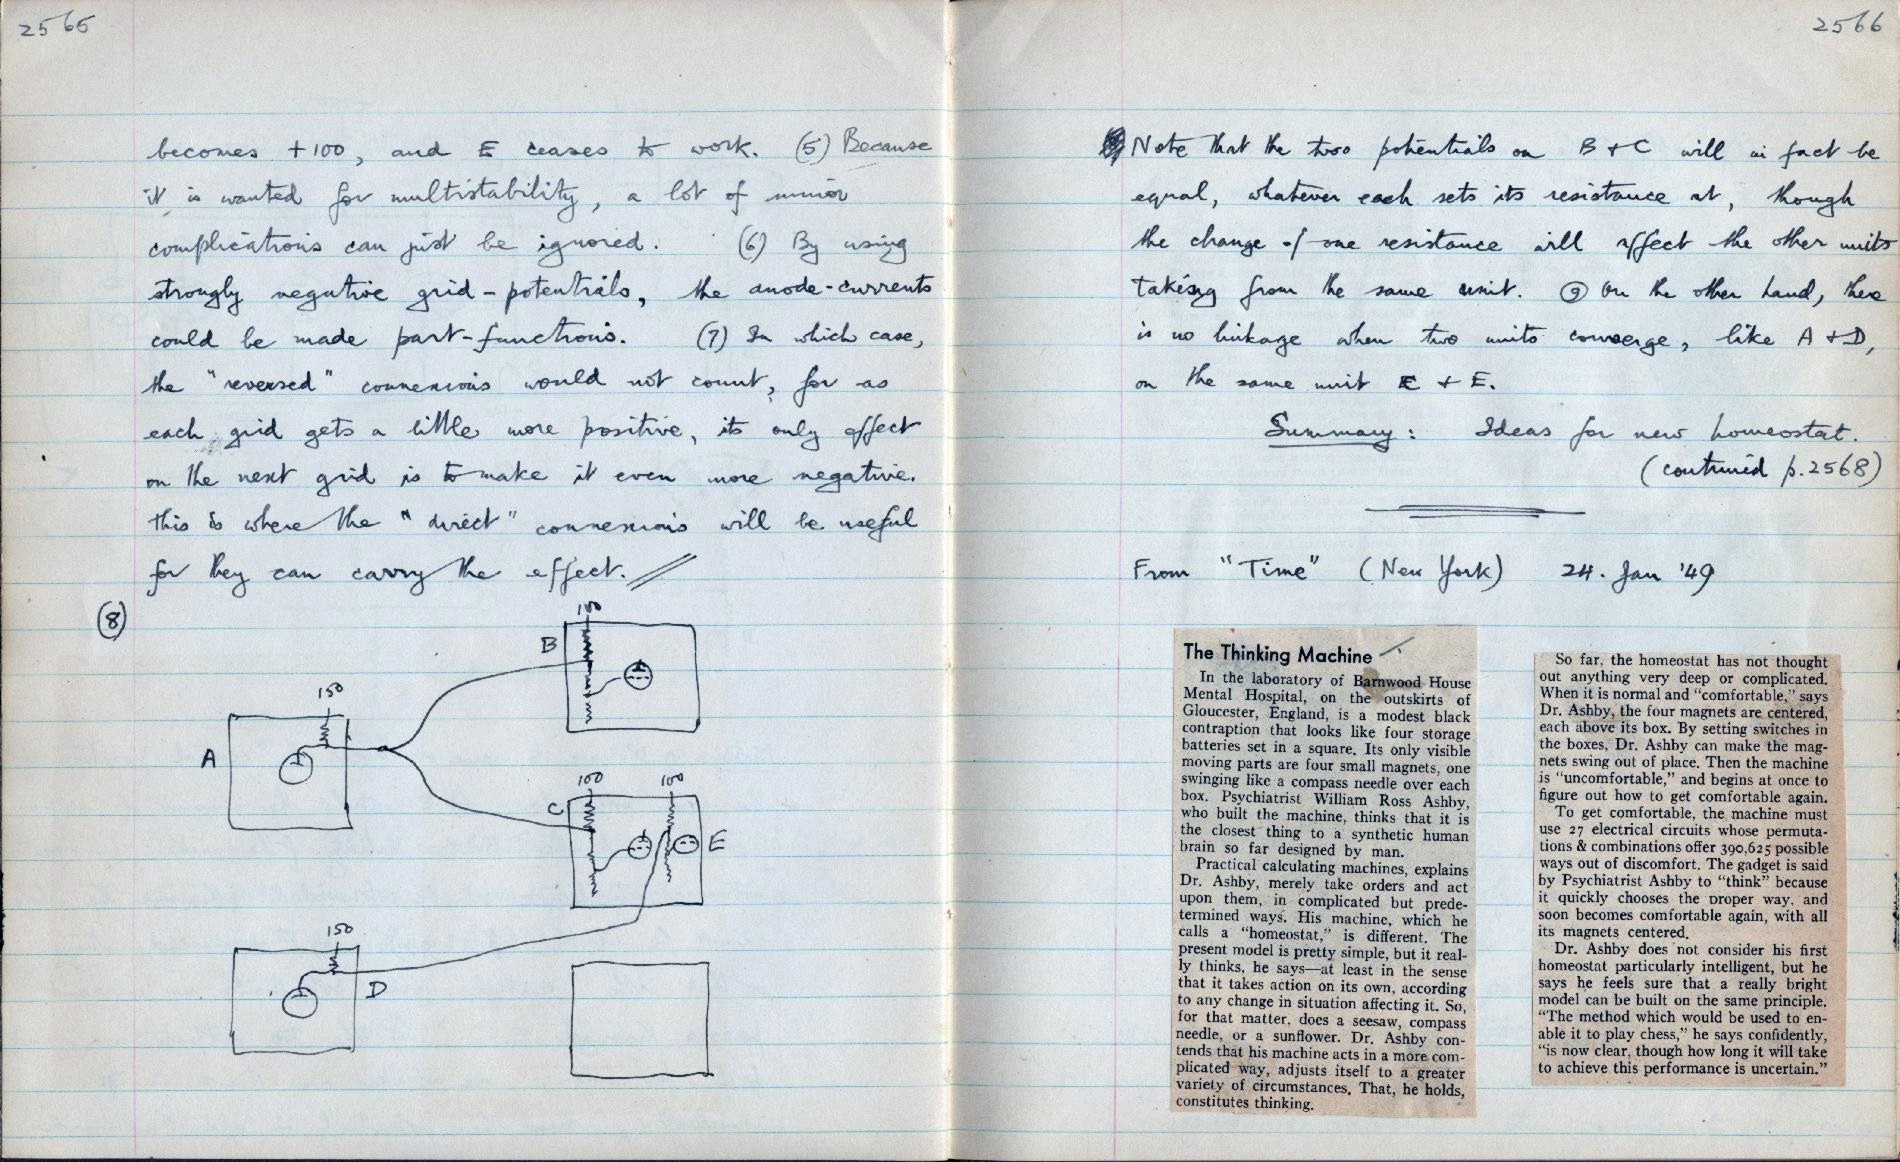 2565
becomes +100, and E ceases to work. (5) Because
it is wanted for multistability, a lot of minor
complications can just be ignored. (6) By using
strongly negative grid-potentials, the anode-currents
could be made part-functions. (7) In which case,
the "reversed" connexions would not count, for as
each grid gets a little more positive, its only effect
on the next grid is to make it even more negative.
This is where the "direct" connexions will be useful
for they can carry the effect.
(8)
100
B
150
A
100
100
C
E
150
D
2566
Note that the two potentials on B & C will in fact be
equal, whatever each sets its resistance at, though
the change of one resistance will affect the other units
taking from the same unit. (9) On the other hand, there
is no linkage when two units converge, like A & D,
on the same unit C & E.
Summary: Ideas for new homeostat.
(continued p.2568)
From "Time" (New York) 24. Jan '49
The Thinking Machine
In the laboratory of Barnwood House
Mental Hospital, on the outskirts of
Gloucester, England, is a modest black
contraption that looks like four storage
batteries set in a square. Its only visible
moving parts are four small magnets, one
swinging like a compass needle over each
box. Psychiatrist William Ross Ashby,
who built the machine, thinks that it is
the closest thing to a synthetic human
brain so far designed by man.
Practical calculating machines, explains
Dr. Ashby, merely take orders and act
upon them, in complicated but prede-
termined ways. His machine, which he
calls a "homeostat," is different. The
present model is pretty simple, but it real-
ly thinks, he says—at least in the sense
that it takes action on its own, according
to any change in situation affecting it. So,
for that matter, does a seesaw, compass
needle, or a sunflower. Dr. Ashby con-
tends that his machine acts in a more com-
plicated way, adjusts itself to a greater
variety of circumstances. That, he holds,
constitutes thinking.
So far, the homeostat has not thought
out anything very deep or complicated.
When it is normal and "comfortable," says
Dr. Ashby, the four magnets are centered,
each above its box. By setting switches in
the boxes, Dr. Ashby can make the mag-
nets swing out of place. Then the machine
is "uncomfortable," and begins at once to
figure out how to get comfortable again.
To get comfortable, the machine must
use 27 electrical circuits whose permuta-
tions & combinations offer 390,625 possible
ways out of discomfort. The gadget is said
by Psychiatrist Ashby to "think" because
it quickly chooses the proper way, and
soon becomes comfortable again, with all
its magnets centered.
Dr. Ashby does not consider his first
homeostat particularly intelligent, but he
says he feels sure that a really bright
model can be built on the same principle.
"The method which would be used to en-
able it to play chess," he says confidently,
"is now clear, though how long it will take
to achieve this performance is uncertain."